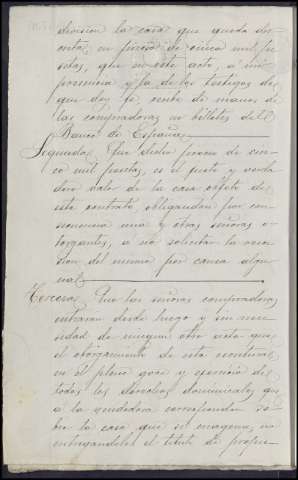 division la casa que queda des-
crita, en precio de cinco mil pe-
setas, que en este acto, a mi
presencia y la de los testigos de
que doy fe, recibe de manos de
las compradoras en billetes del
Banco de España.
Segunda. Que dicho precio de cin-
co mil pesetas, es el justo y verda-
dero valor de la casa objeto de
este contrato, obligandose por con-
secuencia una y otras señoras o-
torgantes, a no solicitar la resci-
sion del mismo por causa algu-
na.
Tercera. Que las señoras compradoras
entraran desde luego y sin nece-
sidad de ningun otro acto que
el otorgamiento de esta escritura
en el pleno goce y ejercicio de
todos los derechos dominicales que
a la vendedora correspondian so-
bre la casa que se enagena, no
entregandoles el titulo de propie-